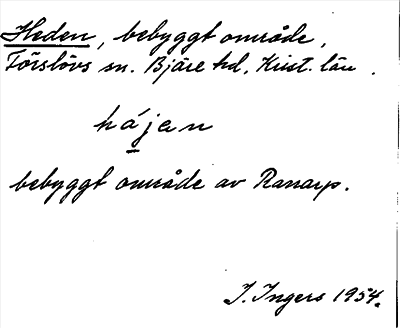 Heden, bebyggt område,
Förslövs sn. Bjäre hd, Krist. län.
hájen
bebyggt område av Ranarp.
I. Ingers 1954.